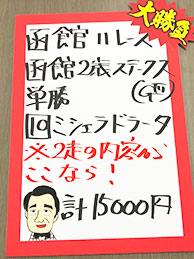 大勝負
函館11レース
函館2歳ステークス
単勝 (GⅢ)
10 ミシェラドラータ
※2走の内容が
ここなら!
計15000円